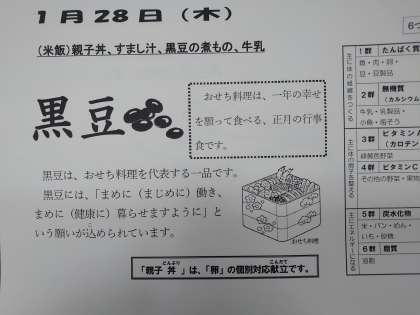 1月28日（木）
（米飯）親子丼、すまし汁、黒豆の煮もの、牛乳
黒豆
おせち料理は、一年の幸せ
を願って食べる、正月の行事
食です。
黒豆は、おせち料理を代表する一品です。
黒豆には、「まめに（まじめに）働き、
まめに（健康に）暮らせますように」と
いう願いが込められています。
おせち料理
「親子丼」は、「卵」の個別対応献立です。
どんぶり
こんだて
6つ
主に体の組織をつくる
1群 たんぱく質
魚・肉・卵・
豆・豆製品
2群 無機質
（カルシウム
牛乳・乳製品・
小魚・海そう
主に体の調子を整える
3群 ビタミンA
（カロテン
緑黄色野菜
4群 ビタミンC
その他の野菜・果物
主にエネルギーになる
5群 炭水化物
米・パン・めん・
いも・砂糖
6群 脂質
油脂